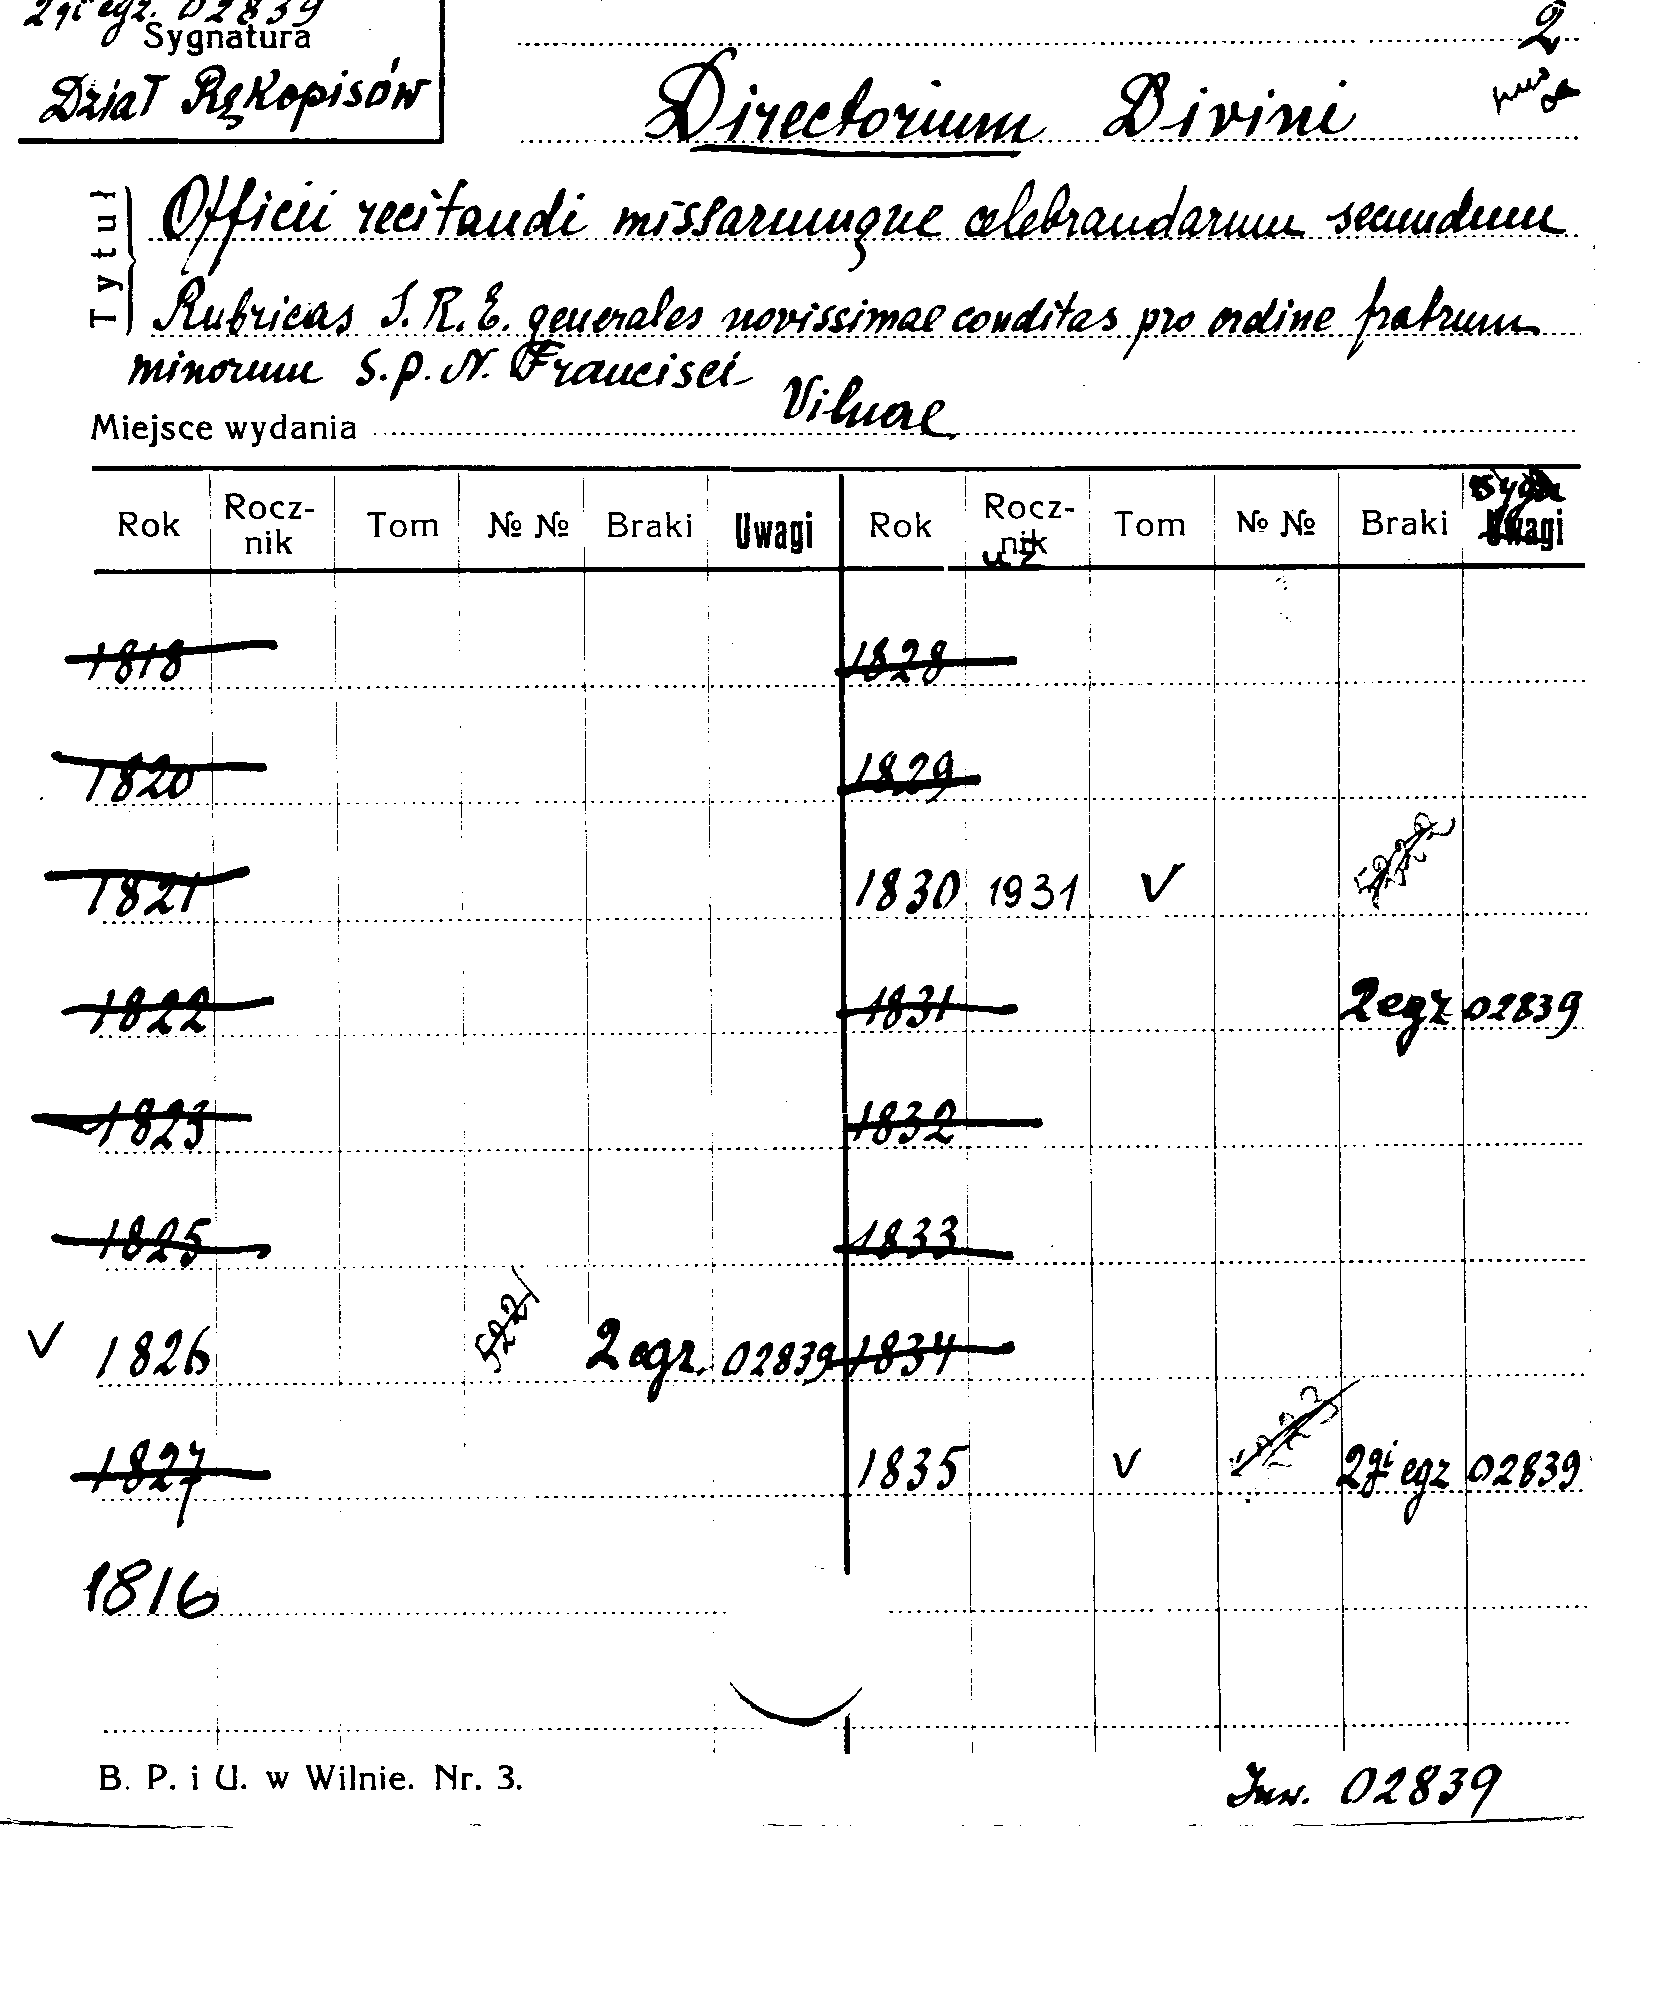 2gi egz. 02839
Sygnatura
Dział Rękopisów
2
Directorium Divini
Tytuł
Officii recitandi missarumque celebrandarum secundum
Rubricas S. R. E. generales novissimae conditas pro ordine fratrum
minorum S. P. N. Francisci
Miejsce wydania Vilnae
Rok Rocz-nik Tom № № Braki Uwagi Rok Rocz-nik Tom № № Braki Sygn Uwagi
1818 1828
1820 1829
1821 1830 1931 V
1822 1831 2 egz 02839
1823 1832
1825 1833
V 1826 5221 2 egz. 02839 1834
1827 1835 V 2gi egz 02839
1816
B. P. i U. w Wilnie. Nr. 3.
Inw. 02839